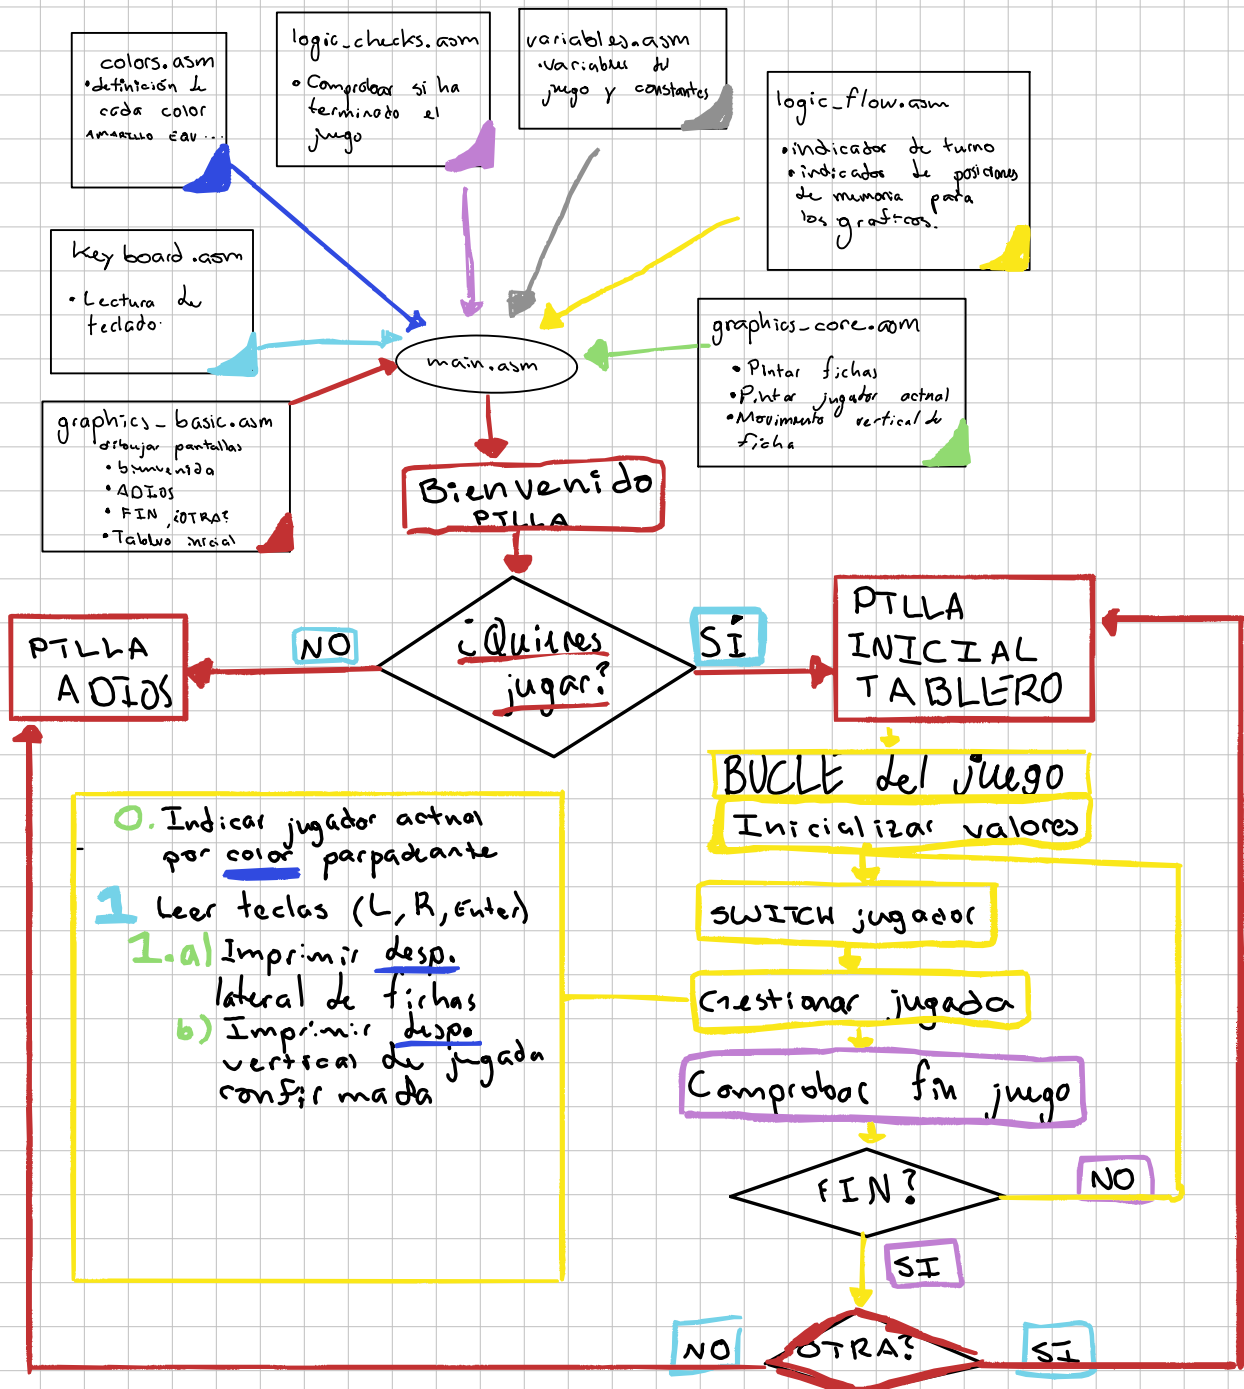 colors.asm
• definición de
cada color
AMARILLO EQU...
logic_checks.asm
• Comprobar si ha
terminado el
juego
variables.asm
• Variables de
juego y constantes
logic_flow.asm
• indicador de turno
• indicador de posiciones
de memoria para
los graficos.
Keyboard.asm
• Lectura de
teclado.
main.asm
graphics_core.asm
• Pintar fichas
• Pintar jugador actual
• Movimiento vertical de
ficha
graphics_basic.asm
dibujar pantallas
• bienvenida
• ADIOS
• FIN ¿OTRA?
• Tablero inicial
Bienvenido
PTLLA
¿Quieres
jugar?
NO
SÍ
PTLLA
ADIOS
PTLLA
INICIAL
TABLERO
BUCLE del juego
Inicializar valores
SWITCH jugador
Gestionar jugada
Comprobar fin juego
FIN?
NO
SI
OTRA?
NO
SI
0. Indicar jugador actual
por color parpadeante
1 Leer teclas (L, R, Enter)
1.a) Imprimir desp.
lateral de fichas
b) Imprimir desp.
vertical de jugada
confirmada